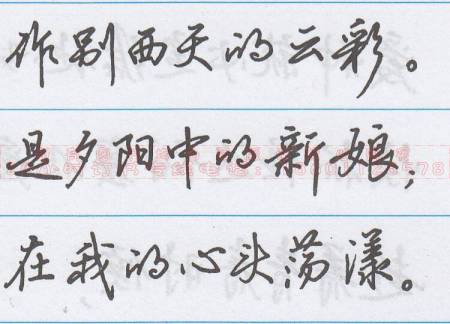 作别西天的云彩。
是夕阳中的新娘;
在我的心头荡漾。